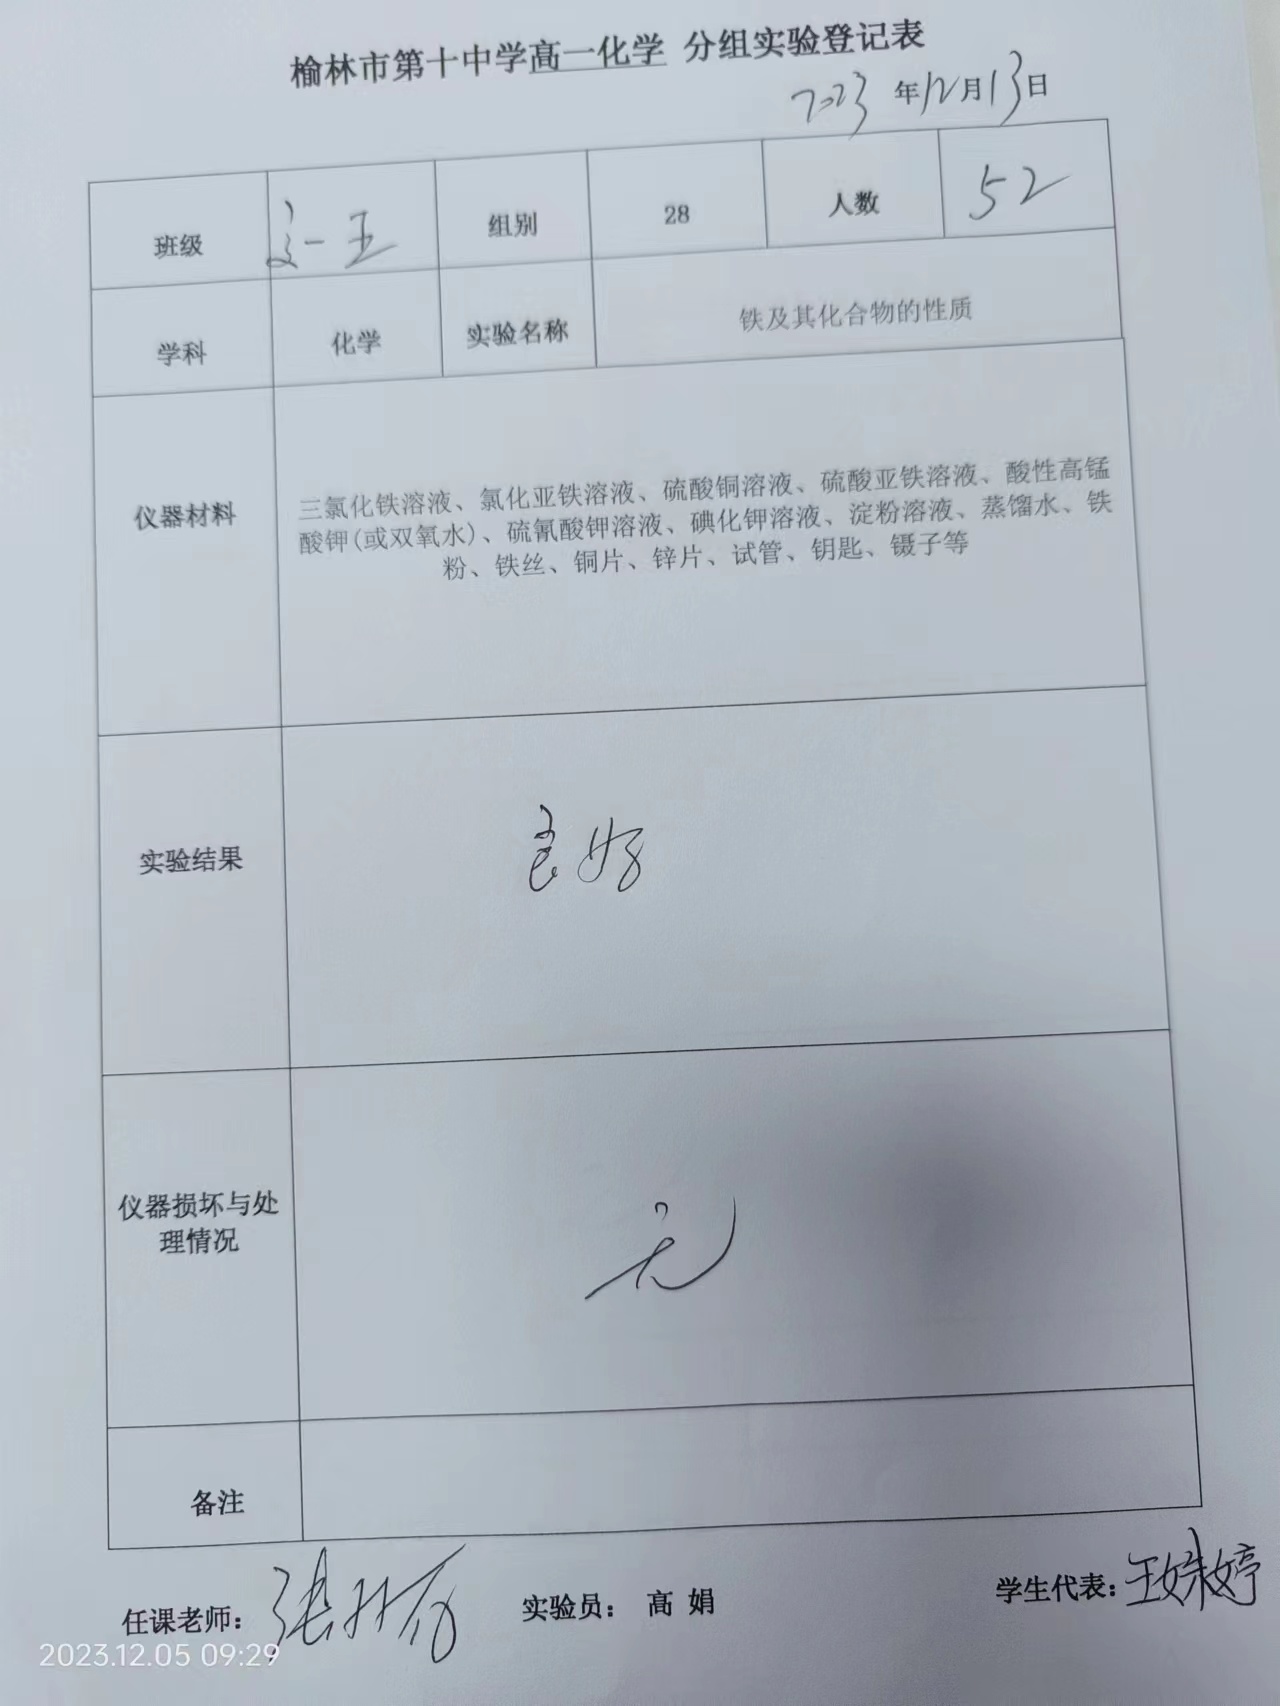 榆林市第十中学高一化学 分组实验登记表
2023年12月13日
班级 高一五 组别 28 人数 52
学科 化学 实验名称 铁及其化合物的性质
仪器材料
三氯化铁溶液、氯化亚铁溶液、硫酸铜溶液、硫酸亚铁溶液、酸性高锰
酸钾(或双氧水)、硫氰酸钾溶液、碘化钾溶液、淀粉溶液、蒸馏水、铁
粉、铁丝、铜片、锌片、试管、钥匙、镊子等
实验结果 良好
仪器损坏与处
理情况
无
备注
任课老师: 张 实验员: 高 娟 学生代表:王姝婷
2023.12.05 09:29